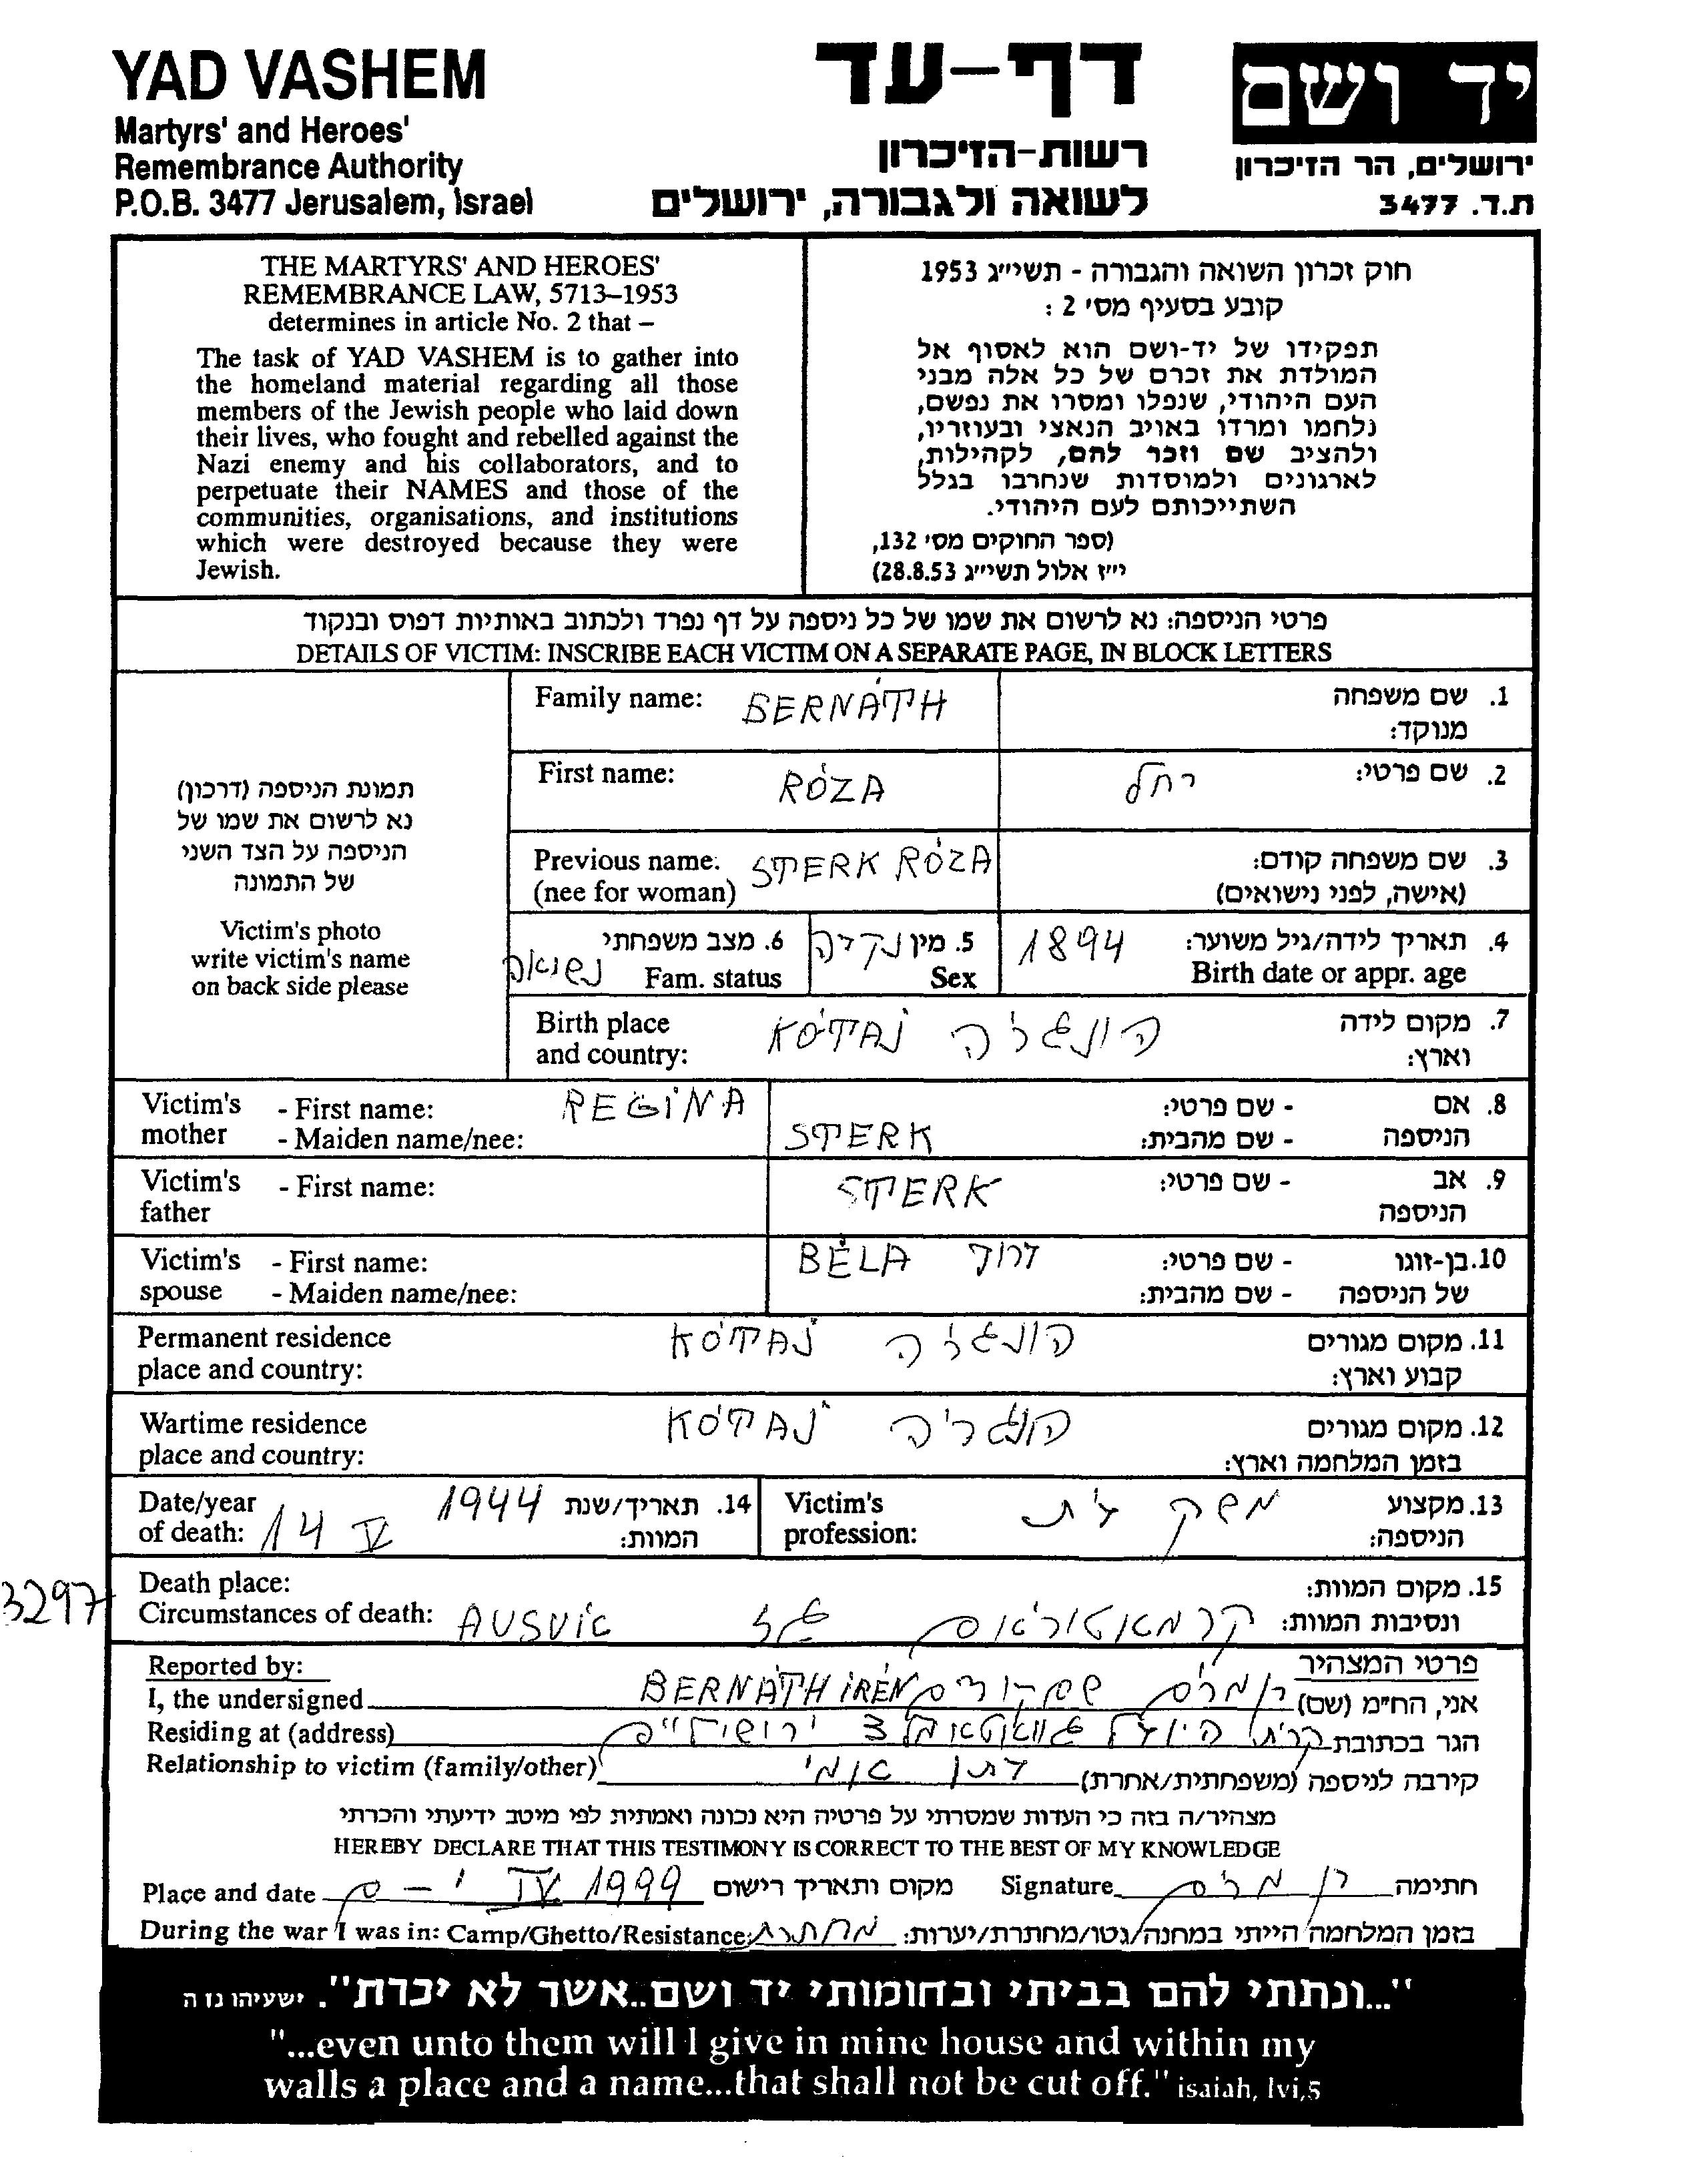 YAD VASHEM
Martyrs' and Heroes'
Remembrance Authority
P.O.B. 3477 Jerusalem, Israel
דף-עד
רשות-הזיכרון
לשואה ולגבורה, ירושלים
יד ושם
ירושלים, הר הזיכרון
ת.ד. 3477
THE MARTYRS' AND HEROES'
REMEMBRANCE LAW, 5713–1953
determines in article No. 2 that –
The task of YAD VASHEM is to gather into
the homeland material regarding all those
members of the Jewish people who laid down
their lives, who fought and rebelled against the
Nazi enemy and his collaborators, and to
perpetuate their NAMES and those of the
communities, organisations, and institutions
which were destroyed because they were
Jewish.
חוק זכרון השואה והגבורה - תשי״ג 1953
קובע בסעיף מס׳ 2 :
תפקידו של יד-ושם הוא לאסוף אל
המולדת את זכרם של כל אלה מבני
העם היהודי, שנפלו ומסרו את נפשם,
נלחמו ומרדו באויב הנאצי ובעוזריו,
ולהציב שם וזכר להם, לקהילות,
לארגונים ולמוסדות שנחרבו בגלל
השתייכותם לעם היהודי.
(ספר החוקים מס׳ 132,
י״ז אלול תשי״ג 28.8.53)
פרטי הניספה: נא לרשום את שמו של כל ניספה על דף נפרד ולכתוב באותיות דפוס ובנקוד
DETAILS OF VICTIM: INSCRIBE EACH VICTIM ON A SEPARATE PAGE, IN BLOCK LETTERS
תמונת הניספה (דרכון)
נא לרשום את שמו של
הניספה על הצד השני
של התמונה
Victim's photo
write victim's name
on back side please
Family name: BERNÁTH 1. שם משפחה
מנוקד:
First name: RÓZA רחל 2. שם פרטי:
Previous name: STERK RÓZA 3. שם משפחה קודם:
(nee for woman) (אישה, לפני נישואים)
6. מצב משפחתי נשואה 5. מין נקבה 1894 4. תאריך לידה/גיל משוער:
Fam. status Sex Birth date or appr. age
Birth place KÓTAJ הונגריה 7. מקום לידה
and country: וארץ:
Victim's - First name: REGINA - שם פרטי: 8. אם
mother - Maiden name/nee: STERK - שם מהבית: הניספה
Victim's - First name: STERK - שם פרטי: 9. אב
father הניספה
Victim's - First name: BÉLA דוד - שם פרטי: 10. בן-זוגו
spouse - Maiden name/nee: - שם מהבית: של הניספה
Permanent residence KÓTAJ הונגריה 11. מקום מגורים
place and country: קבוע וארץ:
Wartime residence KÓTAJ הונגריה 12. מקום מגורים
place and country: בזמן המלחמה וארץ:
Date/year 1944 14. תאריך/שנת Victim's משק בית 13. מקצוע
of death: 14 V המוות: profession: הניספה:
3297
Death place: 15. מקום המוות:
Circumstances of death: AUSVIC גז קרמאטוריאום ונסיבות המוות:
Reported by: פרטי המצהיר
I, the undersigned BERNÁTH IRÉN אני, הח״מ (שם)
Residing at (address) 3 ירושלים הגר בכתובת
Relationship to victim (family/other) קירבה לניספה (משפחתית/אחרת)
מצהיר/ה בזה כי העדות שמסרתי על פרטיה היא נכונה ואמתית לפי מיטב ידיעתי והכרתי
HEREBY DECLARE THAT THIS TESTIMONY IS CORRECT TO THE BEST OF MY KNOWLEDGE
Place and date י-ם IV 1999 מקום ותאריך רישום Signature חתימה
During the war I was in: Camp/Ghetto/Resistance: מחתרת בזמן המלחמה הייתי במחנה/גטו/מחתרת/יערות:
"...ונתתי להם בביתי ובחומותי יד ושם..אשר לא יכרת". ישעיהו נו ה
"...even unto them will I give in mine house and within my
walls a place and a name...that shall not be cut off." isaiah, lvi,5